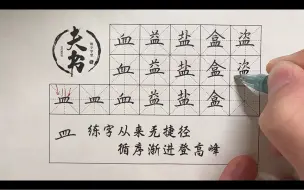 夫书
血 益 盐 盒 盗
血 益 盐 盒 盗
皿 皿 血 益 盐 盒
皿 练字从来无捷径
循序渐进登高峰